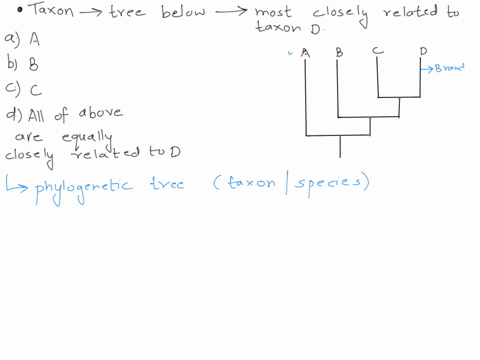 • Taxon → tree below → most closely related to
taxon D.
a) A
b) B
c) C
d) All of above
are equally
closely related to D
A B C D
→ Branch
↳ phylogenetic tree (taxon / species)